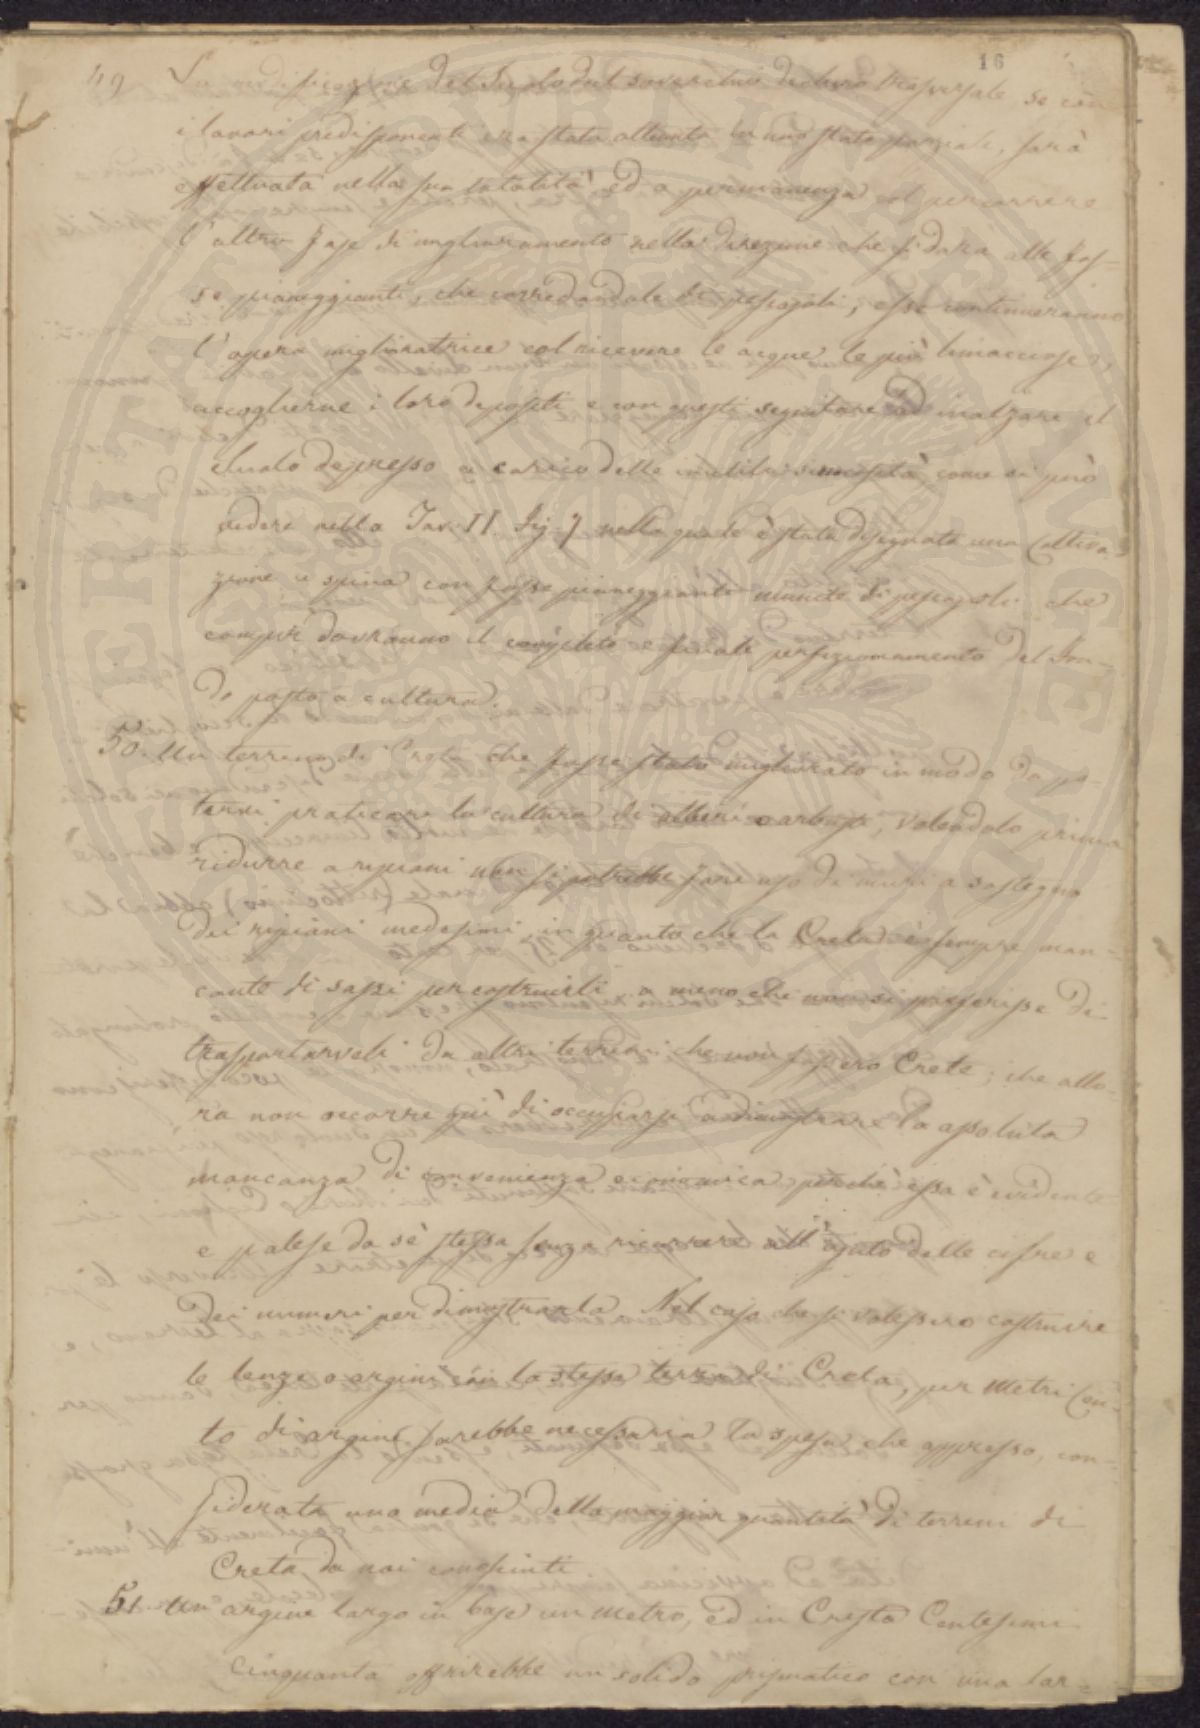 16
49 La modificazione del Suolo dal soverchio declivo trasversale se con
i lavori predisponenti era stata attuata in uno stato parziale, sarà
effettuata nella sua totalità ed a permanenza col percorrere
l'altra fase di miglioramento nella direzione che si darà alle fos-
se pianeggianti, che corredandole di pescajoli, esse continueranno
l'opera miglioratrice col ricevere le acque le più limacciose,
accoglierne i loro depositi e con questi seguitare ad inalzare il
suolo depresso a carico delle inutili sinuosità come si può
vedere nella Tav. II. Fig. 7 nella quale è stata disegnata una Coltiva-
zione a spina con fosse pianeggianti munite di pescajoli che
compir dovranno il completo e finale perfezionamento del fon-
do posto a cultura.
50. Un terreno di Creta che fosse stato migliorato in modo da po-
tervi praticare la cultura di alberi o arbusti, volendolo prima
ridurre a ripiani non si potrebbe fare uso di muri a sostegno
dei ripiani medesimi, in quanto che la Creta è sempre man-
cante di sassi per costruirli, a meno che non si preferisse di
trasportarveli da altri terreni che non fossero Crete; che allo-
ra non occorre qui di occuparsi a dimostrare la assoluta
mancanza di convenienza economica, perché essa è evidente
e palese da sè stessa senza ricorrere all'ajuto delle cifre e
dei numeri per dimostrarla. Nel caso che si volessero costruire
le lenze o argini con la stessa terra di Creta, per Metri Cen-
to di argine sarebbe necessaria la spesa che appresso, con-
siderata una media della maggior quantità di terreni di
Creta da noi conosciuti
51. Un argine largo in base un Metro, ed in Cresta Centesimi
Cinquanta offrirebbe un solido prismatico con una lar-
STERITATIS PUBLICAE AUGUMENTO